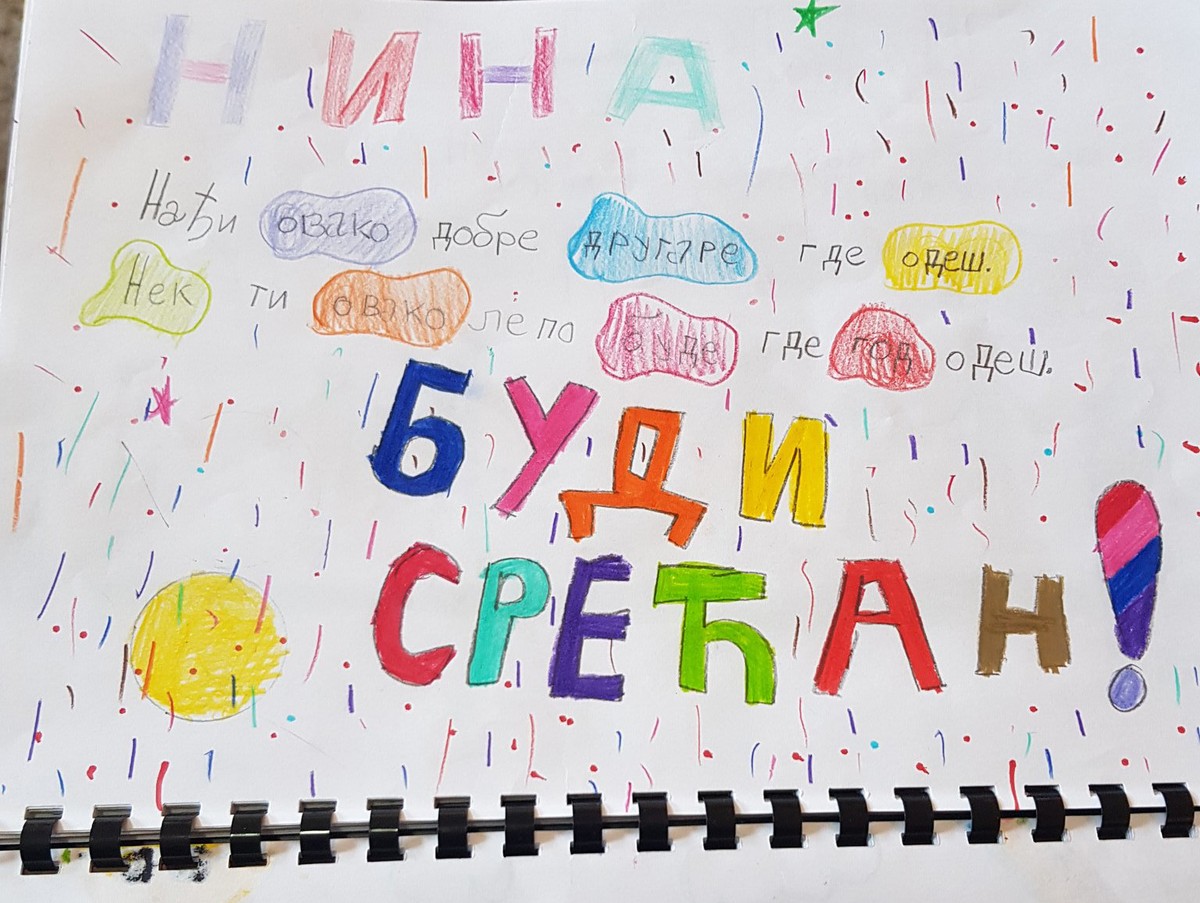 НИНА
Нађи овако добре другаре где одеш.
Нек ти овако лепо буде где год одеш.
БУДИ
СРЕЋАН!